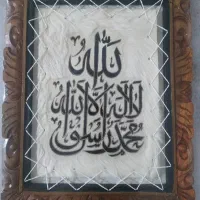 الله
لا إله إلا الله
محمد رسول